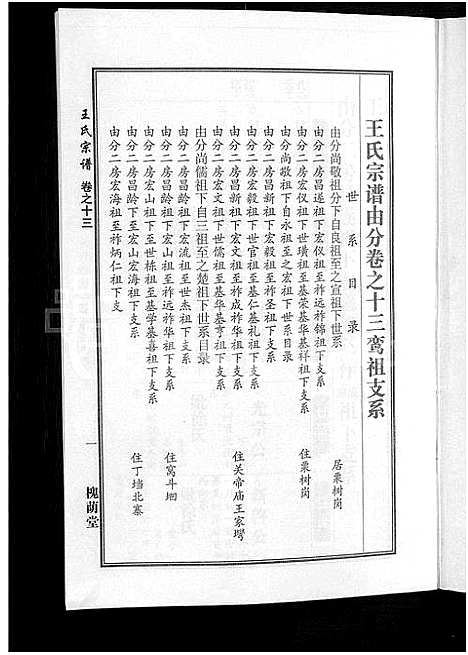 王氏宗谱由分卷之十三鸾祖支系
世系目录
由分尚敬祖分下自良祖至之宣祖下世系 居栗树岗
由分二房昌遂祖下宏仪祖至祚远祚锦祖下支系
由分二房宏仪祖下世璜祖至基荣基华基祥祖下世系 住栗树岗
由分尚敬祖下自永祖至之宏祖下世系目录
由分二房昌新祖下宏毅祖至祚圣祖下支系
由分二房宏毅祖下世官祖至基仁基礼祖下支系
由分二房昌新祖下宏文祖至祚成祚华祖下支系 住关帝庙王家塆
由分二房宏文祖下世儒祖至基华基亨祖下世系
由分尚儒祖下自三祖至之楚祖下世系目录
由分二房昌龄祖下宏流祖至世杰祖下支系
由分二房昌龄祖下宏山祖至祚远祚华祖下支系 住窝斗垇
由分二房宏山祖下世栋祖至基学基喜祖下支系
由分二房昌龄祖下宏山宏海祖下支系 住丁垱北寨
由分二房宏海祖至祚炳仁祖下支
王氏宗谱 卷之十三
一
槐荫堂